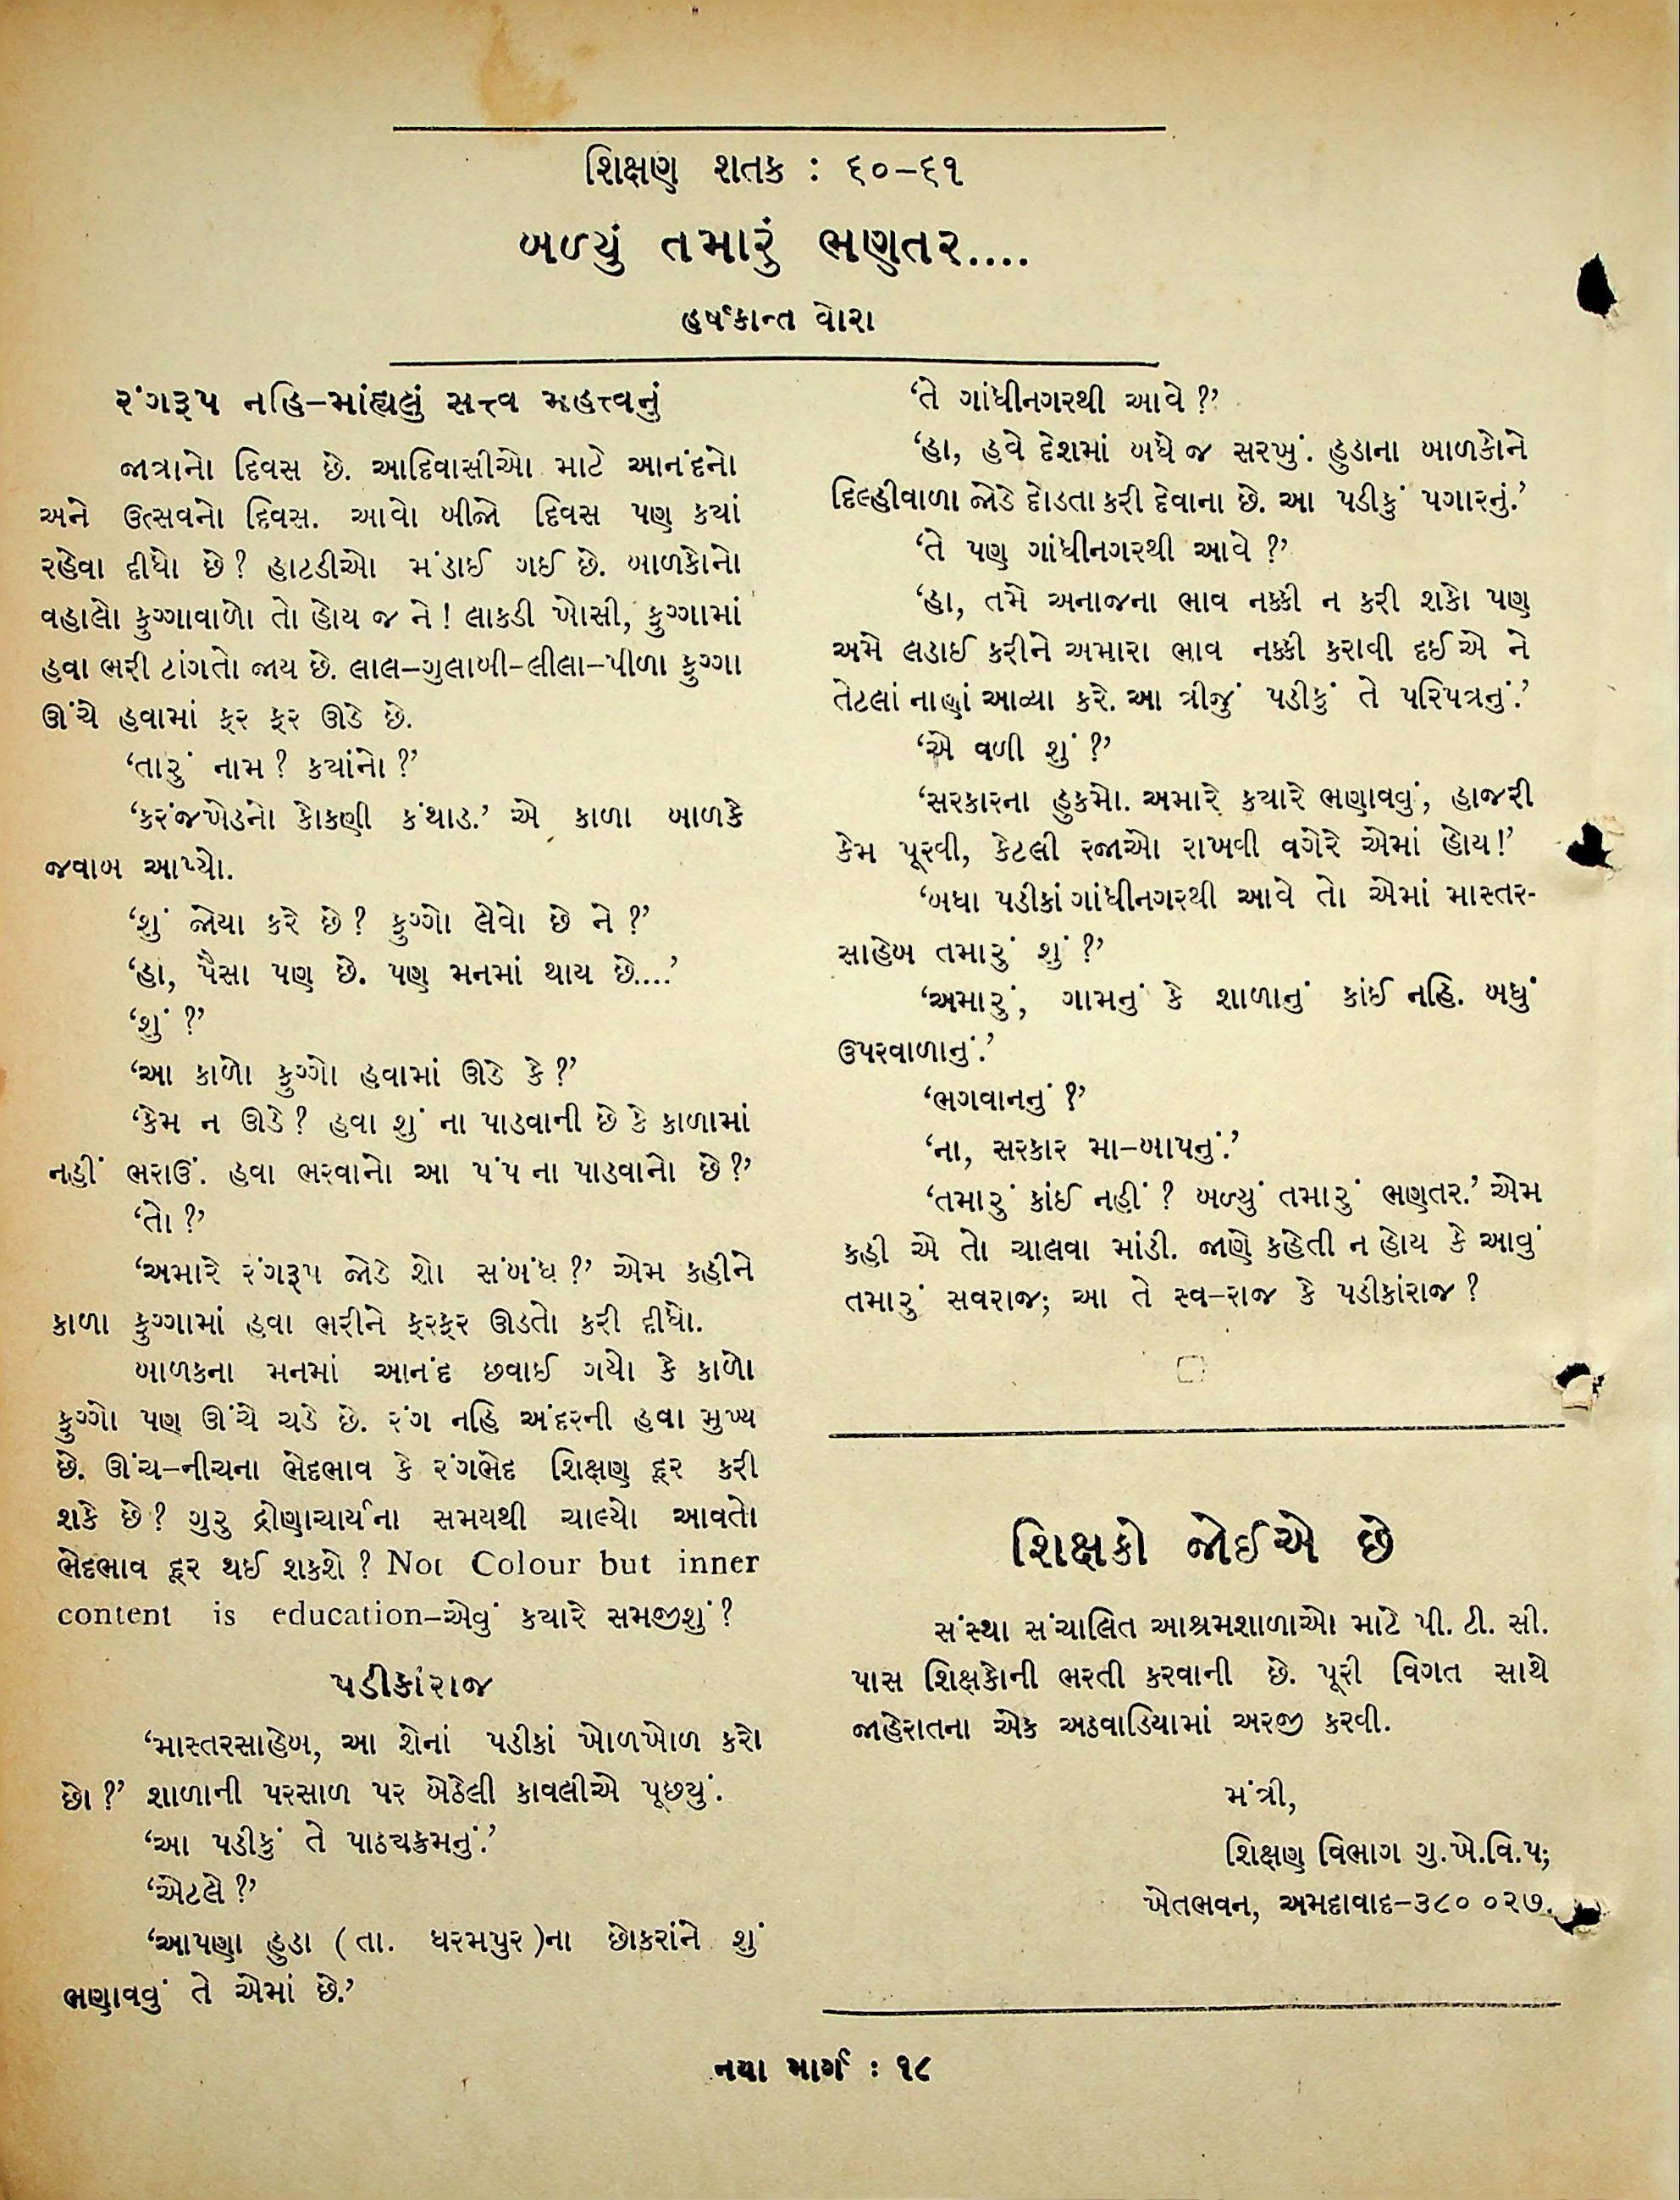 શિક્ષણ શતક : ૬૦–૬૧
બળ્યું તમારું ભણતર....
હર્ષકાન્ત વોરા
રંગરૂપ નહિ–માંહ્યલું સત્ત્વ મહત્ત્વનું
જાત્રાનો દિવસ છે. આદિવાસીઓ માટે આનંદનો
અને ઉત્સવનો દિવસ. આવો બીજો દિવસ પણ કયાં
રહેવા દીધો છે? હાટડીઓ મંડાઈ ગઈ છે. બાળકોનો
વહાલો ફુગ્ગાવાળો તો હોય જ ને! લાકડી ખોસી, ફુગ્ગામાં
હવા ભરી ટાંગતો જાય છે. લાલ–ગુલાબી–લીલા–પીળા ફુગ્ગા
ઊંચે હવામાં ફર ફર ઊડે છે.
‘તારું નામ? કયાંનો?’
‘કરંજખેડનો કોકણી કંથાડ.’ એ કાળા બાળકે
જવાબ આપ્યો.
‘શું જોયા કરે છે? ફુગ્ગો લેવો છે ને?’
‘હા, પૈસા પણ છે. પણ મનમાં થાય છે....’
‘શું?’
‘આ કાળો ફુગ્ગો હવામાં ઊડે કે?’
‘કેમ ન ઊડે? હવા શું ના પાડવાની છે કે કાળામાં
નહીં ભરાઉં. હવા ભરવાનો આ પંપ ના પાડવાનો છે?’
‘તો?’
‘અમારે રંગરૂપ જોડે શો સંબંધ?’ એમ કહીને
કાળા ફુગ્ગામાં હવા ભરીને ફરફર ઊડતો કરી દીધો.
બાળકના મનમાં આનંદ છવાઈ ગયો કે કાળો
ફુગ્ગો પણ ઊંચે ચડે છે. રંગ નહિ અંદરની હવા મુખ્ય
છે. ઊંચ–નીચના ભેદભાવ કે રંગભેદ શિક્ષણ દૂર કરી
શકે છે? ગુરુ દ્રોણાચાર્યના સમયથી ચાલ્યો આવતો
ભેદભાવ દૂર થઈ શકશે? Not Colour but inner
content is education–એવું કયારે સમજીશું?
પડીકાંરાજ
‘માસ્તરસાહેબ, આ શેનાં પડીકાં ખોળખોળ કરો
છો?’ શાળાની પરસાળ પર બેઠેલી કાવલીએ પૂછયું.
‘આ પડીકું તે પાઠયક્રમનું.’
‘એટલે?’
‘આપણા હુડા (તા. ધરમપુર)ના છોકરાંને શું
ભણાવવું તે એમાં છે.’
‘તે ગાંધીનગરથી આવે?’
‘હા, હવે દેશમાં બધે જ સરખું. હુડાના બાળકોને
દિલ્હીવાળા જોડે દોડતા કરી દેવાના છે. આ પડીકું પગારનું.’
‘તે પણ ગાંધીનગરથી આવે?’
‘હા, તમે અનાજના ભાવ નક્કી ન કરી શકો પણ
અમે લડાઈ કરીને અમારા ભાવ નક્કી કરાવી દઈએ ને
તેટલાં નાણાં આવ્યા કરે. આ ત્રીજું પડીકું તે પરિપત્રનું.’
‘એ વળી શું?’
‘સરકારના હુકમો. અમારે કયારે ભણાવવું, હાજરી
કેમ પૂરવી, કેટલી રજાઓ રાખવી વગેરે એમાં હોય!’
‘બધા પડીકાં ગાંધીનગરથી આવે તો એમાં માસ્તર-
સાહેબ તમારું શું?’
‘અમારું, ગામનું કે શાળાનું કાંઈ નહિ. બધું
ઉપરવાળાનું.’
‘ભગવાનનું?’
‘ના, સરકાર મા–બાપનું.’
‘તમારું કાંઈ નહીં? બળ્યું તમારું ભણતર.’ એમ
કહી એ તો ચાલવા માંડી. જાણે કહેતી ન હોય કે આવું
તમારું સવરાજ; આ તે સ્વ–રાજ કે પડીકાંરાજ?
શિક્ષકો જોઈએ છે
સંસ્થા સંચાલિત આશ્રમશાળાઓ માટે પી. ટી. સી.
પાસ શિક્ષકોની ભરતી કરવાની છે. પૂરી વિગત સાથે
જાહેરાતના એક અઠવાડિયામાં અરજી કરવી.
મંત્રી,
શિક્ષણ વિભાગ ગુ.ખે.વિ.પ;
ખેતભવન, અમદાવાદ–૩૮૦ ૦૨૭.
નયા માર્ગ : ૧૮